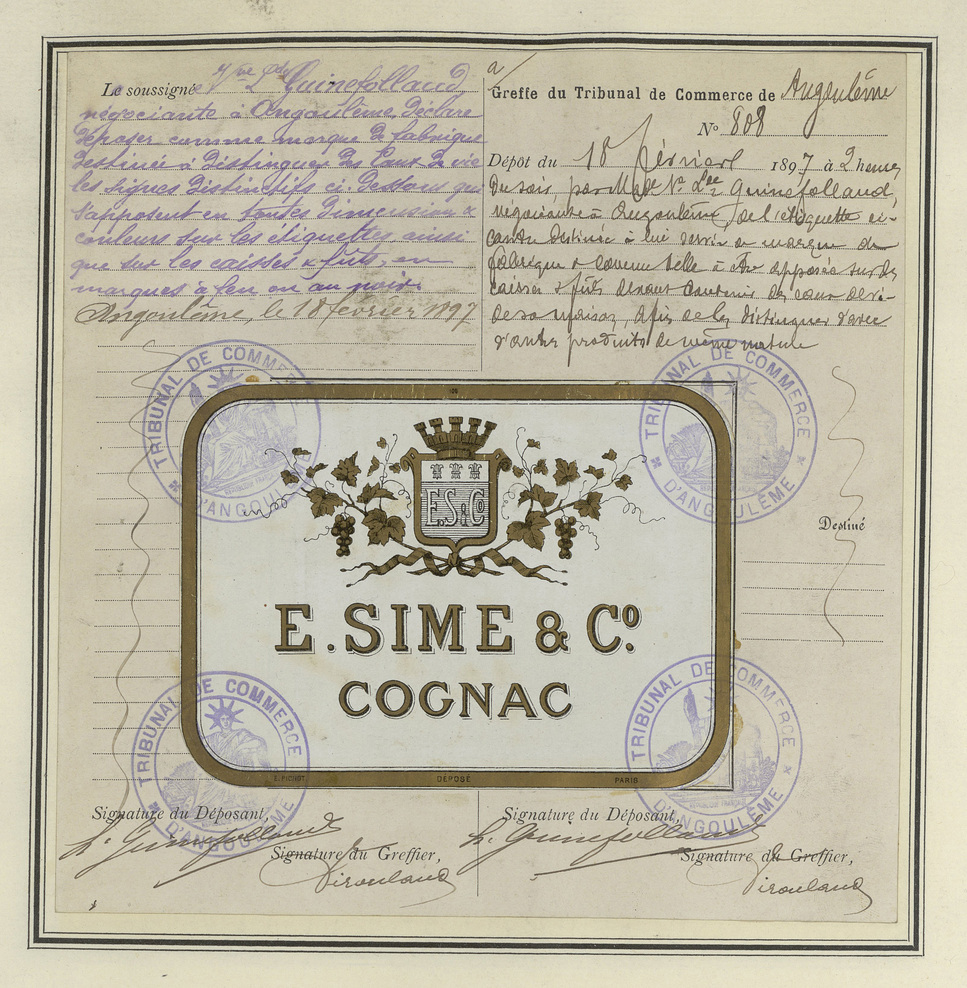 Le soussigné Vve Lde Guinefollaud
négociante à Angoulême, déclare
déposer comme marque de fabrique
destinée à distinguer des Eaux de vie
les signes distinctifs ci-dessous qui
s'apposent en toutes dimensions &
couleurs sur les étiquettes, ainsi
que sur les caisses & fûts, en
marques à feu ou au noir.
Angoulême, le 18 février 1897
Greffe du Tribunal de Commerce de Angoulême
No 808
Dépôt du 18 février 1897 à 2 heures
du soir, par Made Ve Lde Guinefollaud,
négociante à Angoulême, de l'étiquette ci-
contre destinée à lui servir de marque de
fabrique & comme telle à être apposée sur des
caisses & fûts devant contenir des eaux-de-vi-
de sa maison, afin de les distinguer d'avec
d'autres produits de même nature
TRIBUNAL DE COMMERCE D'ANGOULÊME
TRIBUNAL DE COMMERCE D'ANGOULÊME
Destiné
E.S.&Co
E. SIME & Co.
COGNAC
DÉPOSÉ
PARIS
TRIBUNAL DE COMMERCE D'ANGOULÊME
TRIBUNAL DE COMMERCE D'ANGOULÊME
Signature du Déposant,
L. Guinefollaud
Signature du Greffier,
Signature du Déposant,
L. Guinefollaud
Signature du Greffier,